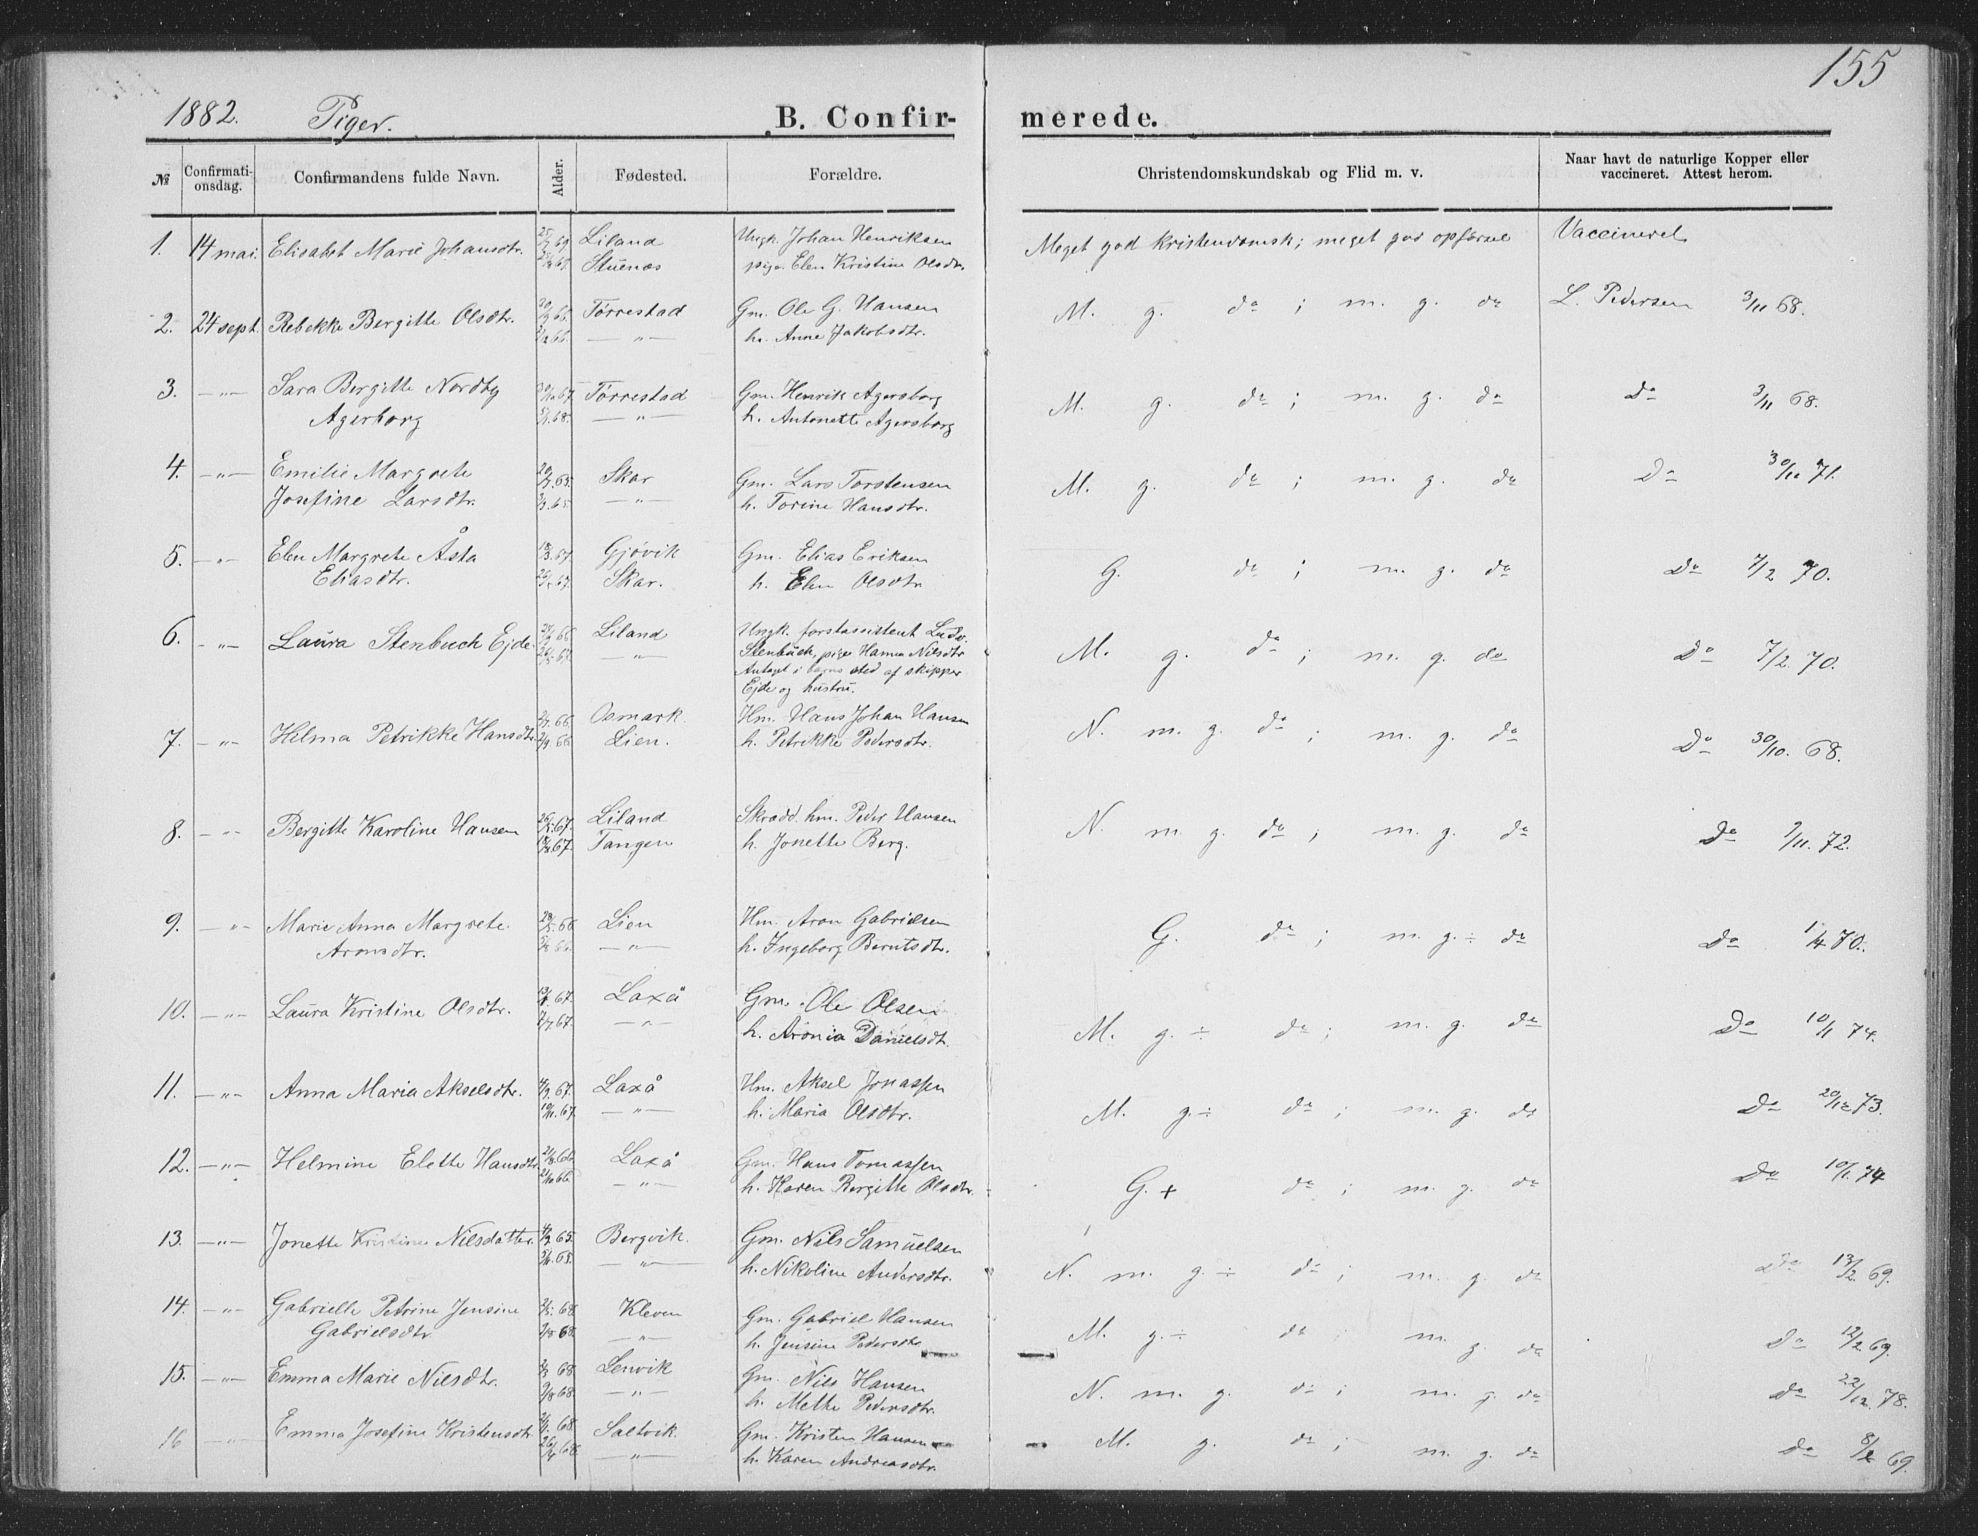 155
1882. Piger. B. Confirmerede.
№ Confirmationsdag. Confirmandens fulde Navn. Alder. Fødested. Forældre. Christendomskundskab og Flid m. v. Naar havt de naturlige Kopper eller vaccineret. Attest herom.
1. 14 mai. Elisabet Marie Johansdtr. Liland Ungk. Johan Henriksen Meget god kristendomsk; meget god opførsel Vaccineret
Stuenæs pige Elen Kristine Olsdtr.
2. 24 sept. Rebekke Bergitte Olsdtr. Tørrestad Gm. Ole G. Hansen M. g. do ; m. g. do L. Pedersen 3/11 68.
— „ — h. Anne Jakobsdtr.
3. — „ — Sara Bergitte Nordby Tørrestad Gm. Henrik Agersborg M. g. do ; m. g. do Do 3/11 68.
Agerborg — „ — h. Antonette Agersborg
4. — „ — Emilie Margrete Skar Gm. Lars Torstensen M. g. do ; m. g. do Do 30/12 71.
Josefine Larsdtr. — „ — h. Torine Hansdtr.
5. — „ — Elen Margrete Åsta Gjøvik Gm. Elias Eriksen G. do ; m. g. do Do 7/2 70.
Eliasdtr. Skar. h. Elen Olsdtr
6. — „ — Laura Stenbuch Ejde Liland Ungk. forstassistent Ludv. M. g. do ; m. g. do Do 7/2. 70.
— „ — Stenbuch, pige Hanna Nilsdtr
Antaget i barns sted af skipper
Ejde og hustru.
7. — „ — Helma Petrikke Hansdtr Osmark. Hm. Hans Johan Hansen N. m. g. do ; m. g. do Do 30/10. 68.
Lien. h. Petrikke Pedersdtr.
8. — „ — Bergitte Karoline Hansen Liland Skrædd. hm. Peder Hansen N. m g. do ; m. g. do Do 7/11. 72.
Tangen h. Jonette Berg.
9. — „ — Marie Anna Margrete Lien Hm. Aron Gabrielsen G. do ; m. g. ÷ do Do 1/4 70.
Aronsdtr. — „ — h. Ingeborg Berntsdtr.
10. — „ — Laura Kristine Olsdtr. Laxå Gm. Ole Olsen M. g. ÷ do ; m. g. do Do 10/1 74.
— „ — h. Aronia Danielsdtr.
11. — „ — Anna Maria Akselsdtr. 4/9 67. Laxå Hm. Aksel Jonassen M. g. ÷ do ; m. g. do Do 20/12 73.
— „ — h. Maria Olsdtr.
12. — „ — Helmine Elette Hansdtr Laxå Gm. Hans Tomassen G. + do ; m. g. do Do 10/1. 74
— „ — h. Karen Bergitte Olsdtr.
13. — „ — Jonette Kristine Nilsdatter. Bergvik. Gm. Nils Samuelsen N. m. g. ÷ do ; m. g. do Do 13/2 69.
— „ — h. Nikoline Andersdtr.
14. — „ — Gabrielle Petrine Jensine Kleven Gm. Gabriel Hansen M. g. ÷ do ; m. g. do Do 12/2 69.
Gabrielsdtr — „ — h. Jensine Pedersdtr
15. — „ — Emma Marie Nilsdtr. Lenvik Gm. Nils Hansen N. m. g. do ; m. g. do Do 22/12. 78.
9/8 68. — „ — h. Mette Pedersdtr.
16 — „ — Emma Josefine Kristensdtr Saltvik. Gm. Kristen Hansen M. g. do ; m. g. do Do 8/2 69.
— „ — h. Karen Andreasdtr.